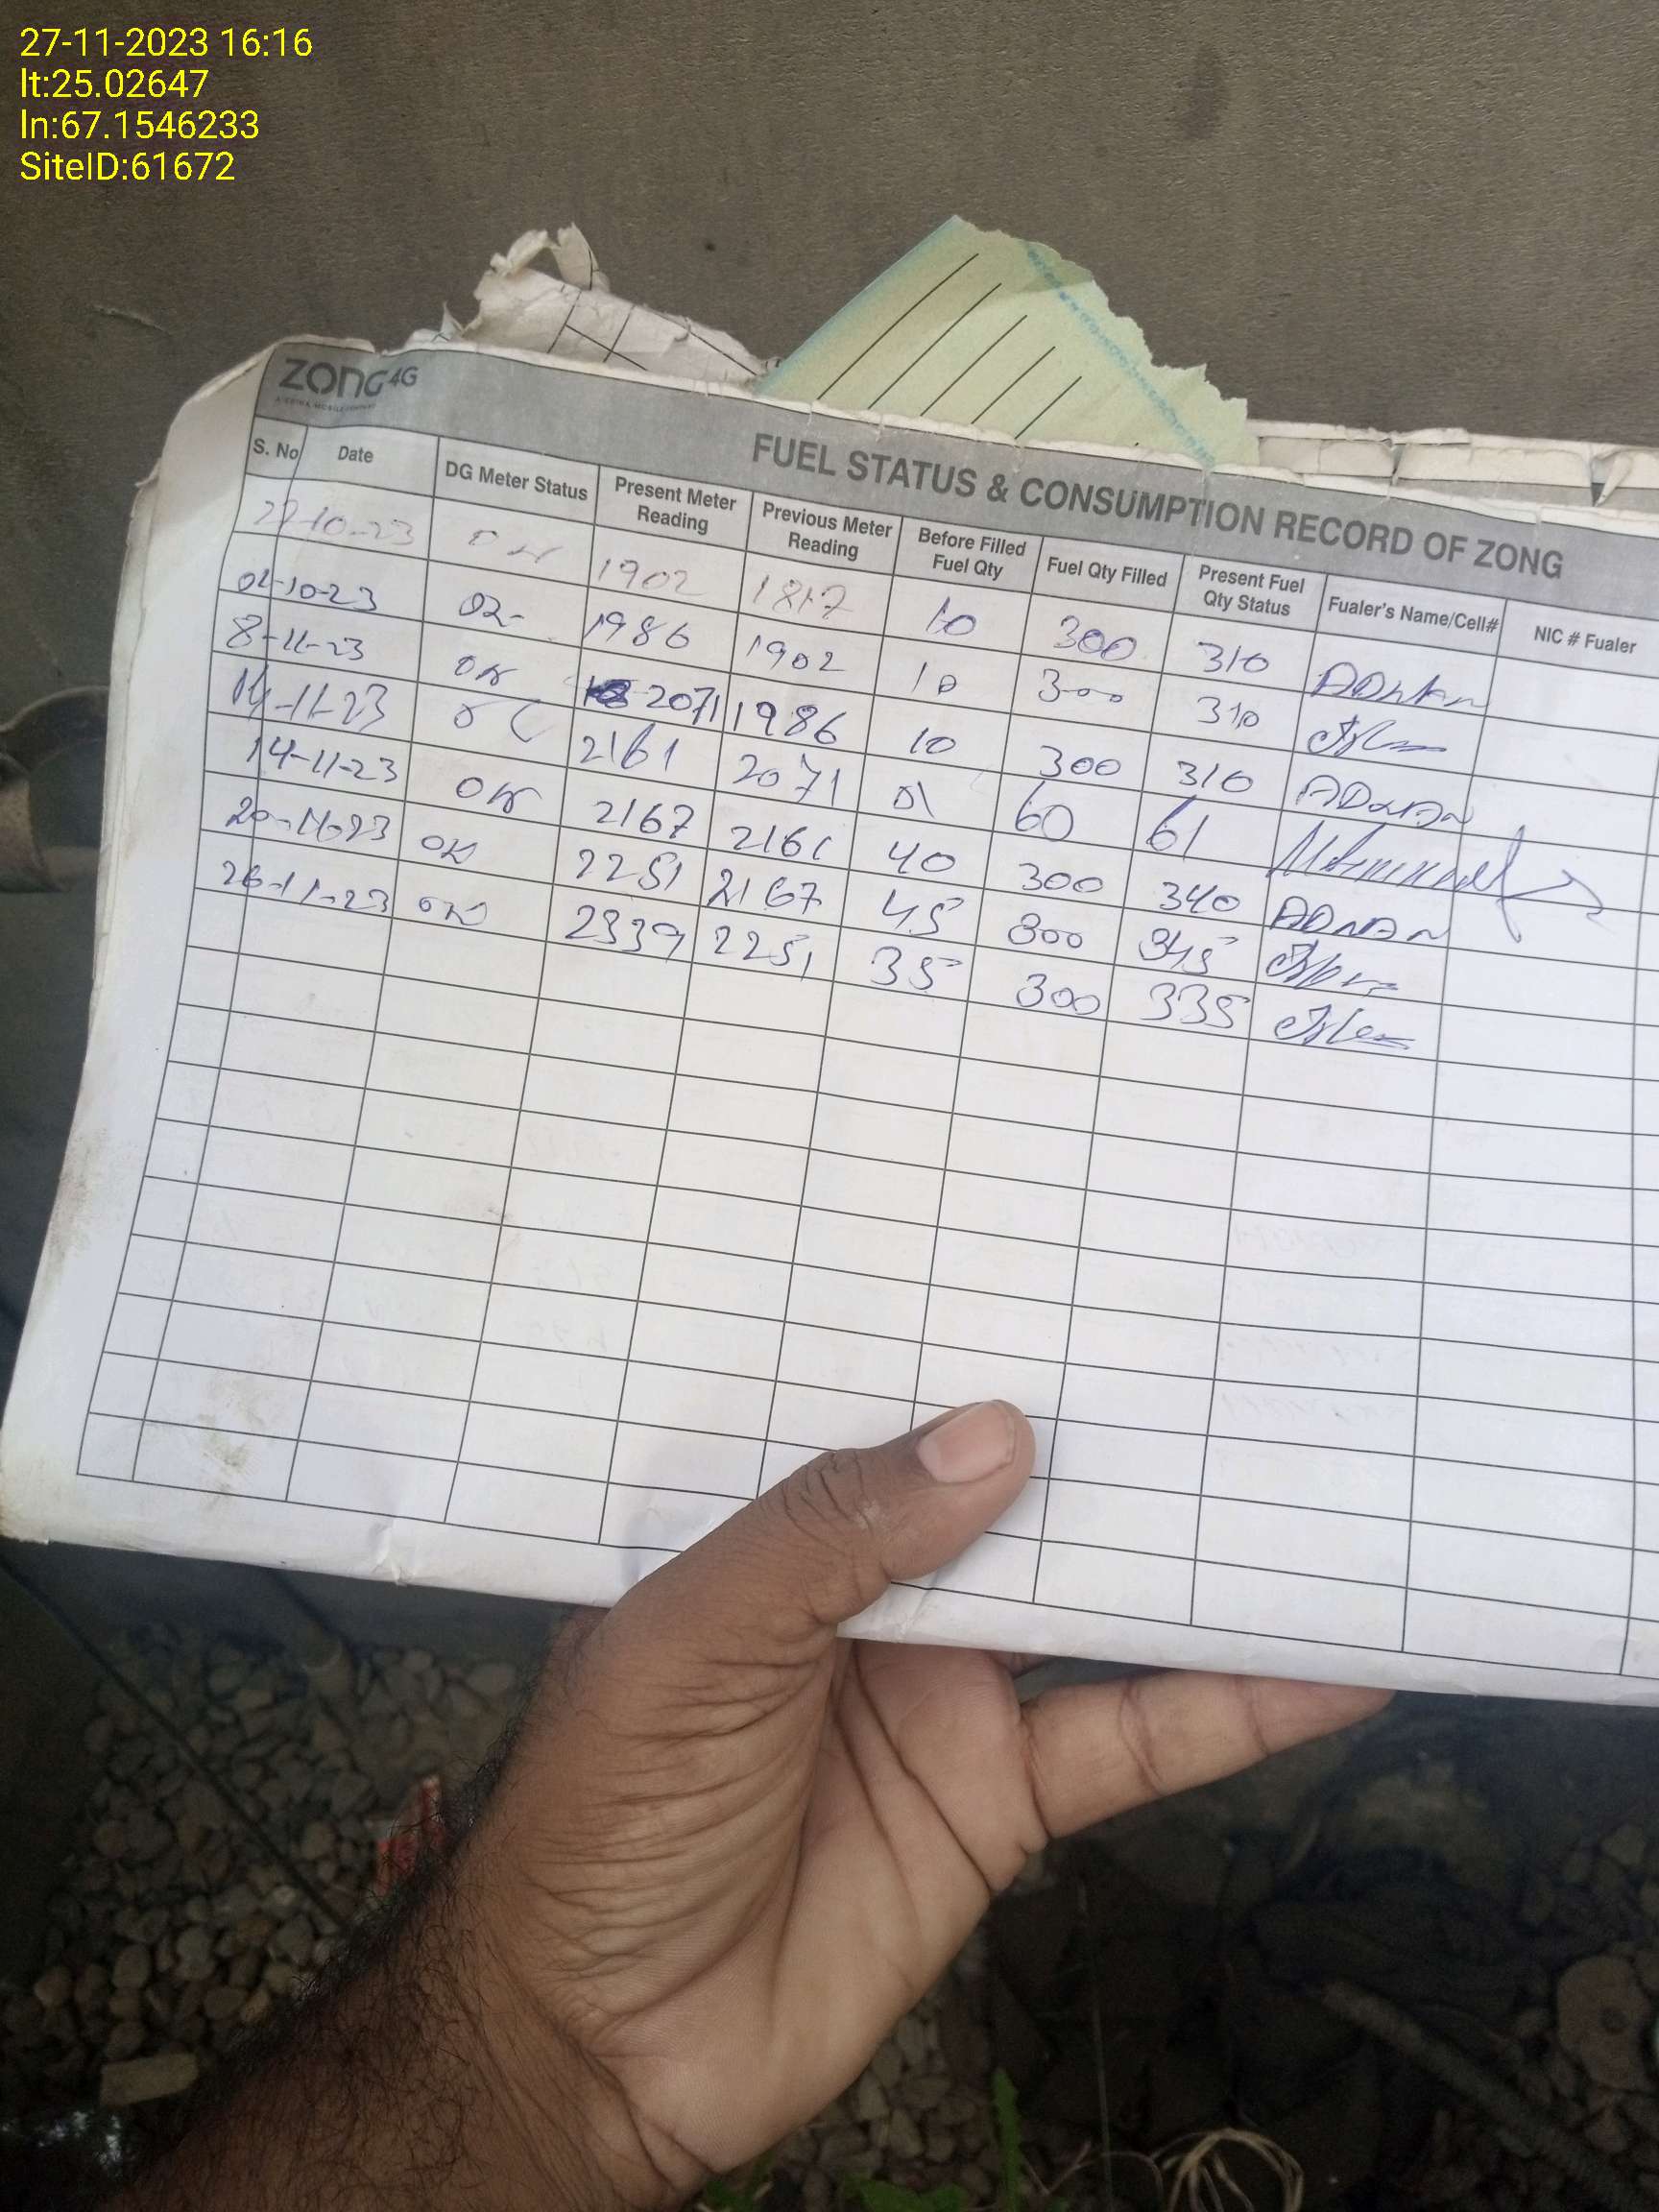 27-11-2023 16:16
lt:25.02647
ln:67.1546233
SiteID:61672
ZONG 4G
FUEL STATUS & CONSUMPTION RECORD OF ZONG
S. No Date DG Meter Status Present Meter Reading Previous Meter Reading Before Filled Fuel Qty Fuel Qty Filled Present Fuel Qty Status Fualer's Name/Cell# NIC # Fualer
10-23 1902 1817 10 300 310 ADNAN
02-10-23 1986 1902 10 300 310
8-11-23 OK 2071 1986 10 300 310 ADNAN
14-11-23 2161 2071 01 60 61
14-11-23 OK 2167 2161 40 300 340 ADNAN
20-11-23 OK 2251 2167 45 300 345
26-11-23 OK 2339 2251 35 300 335